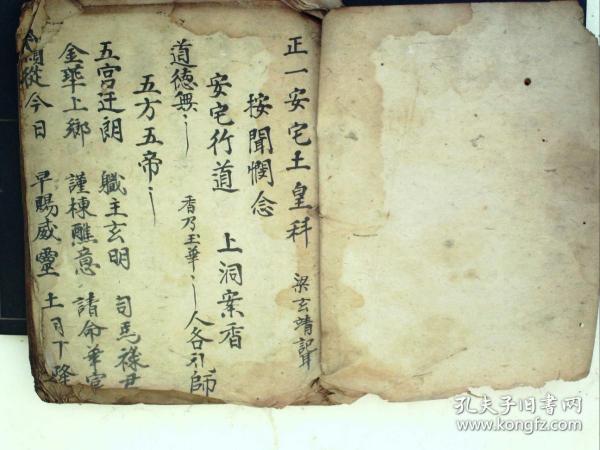 正一安宅土皇科 梁玄靖記
按聞憫念
安宅行道 上洞案香
道德無〻 香乃玉華〻人各礼師
五方五帝〻
五宮迁朗 職主玄明 司馬祿
金華上鄉 謹棟醮意 請命
從今日 早賜威靈 土司下降
孔夫子旧书网
www.kongfz.com